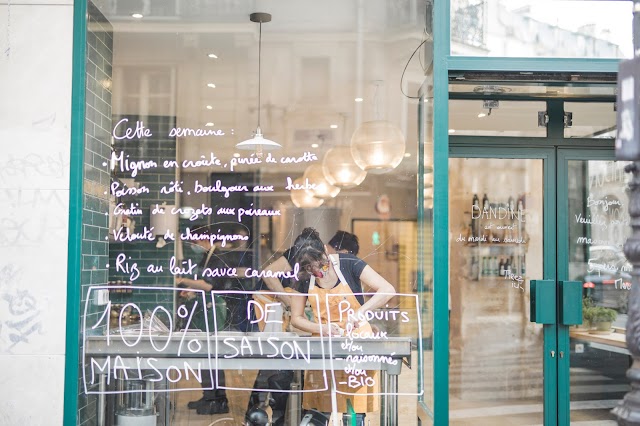 Cette semaine :
• Mignon en croûte, purée de carotte
• Poisson rôti, boulgour aux herbes
• Gratin de crozets aux poireaux
• Velouté de champignons
Riz au lait, sauce caramel
100%
MAISON
DE
SAISON
PRODUITS
- locaux
&/ou
- raisonnés
&/ou
- BIO
BANDINI
est ouvert
du mardi au samedi
Bonjour